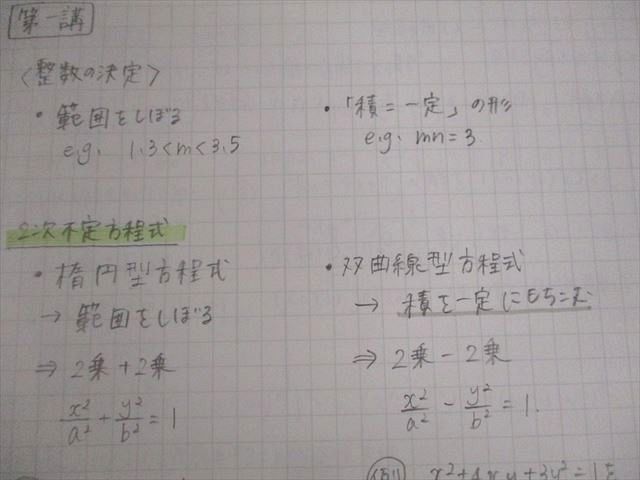 第一講
〈整数の決定〉
・範囲をしぼる
e.g. 1.3<m<3.5
・「積=一定」の形
e.g. mn=3
2次不定方程式
・楕円型方程式
→ 範囲をしぼる
⇒ 2乗+2乗
x²/a² + y²/b² = 1
・双曲線型方程式
→ 積を一定にもちこむ
⇒ 2乗-2乗
x²/a² - y²/b² = 1.
x²+4xy+3y²=15